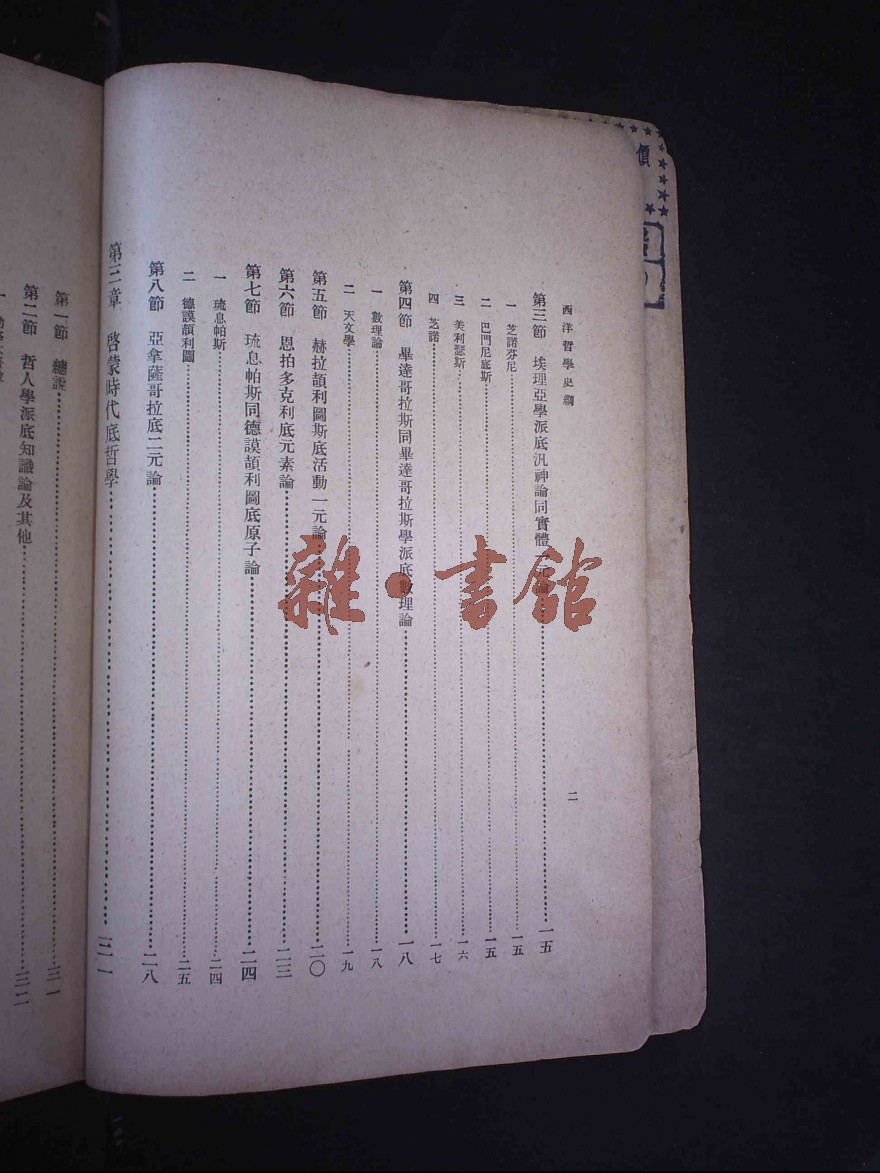 西洋哲學史綱
二
第三節 埃理亞學派底汎神論同實體一元論 一五
一 芝諾芬尼 一五
二 巴門尼底斯 一五
三 美利瑟斯 一六
四 芝諾 一七
第四節 畢達哥拉斯同畢達哥拉斯學派底數理論 一八
一 數理論 一八
二 天文學 一九
第五節 赫拉頡利圖斯底活動一元論 二〇
第六節 恩拍多克利底元素論 二三
第七節 琉息帕斯同德謨頡利圖底原子論 二四
一 琉息帕斯 二四
二 德謨頡利圖 二五
第八節 亞拿薩哥拉底二元論 二八
第三章 啓蒙時代底哲學 三一
第一節 總說 三一
第二節 哲人學派底知識論及其他 三二
一
價
雜·書館